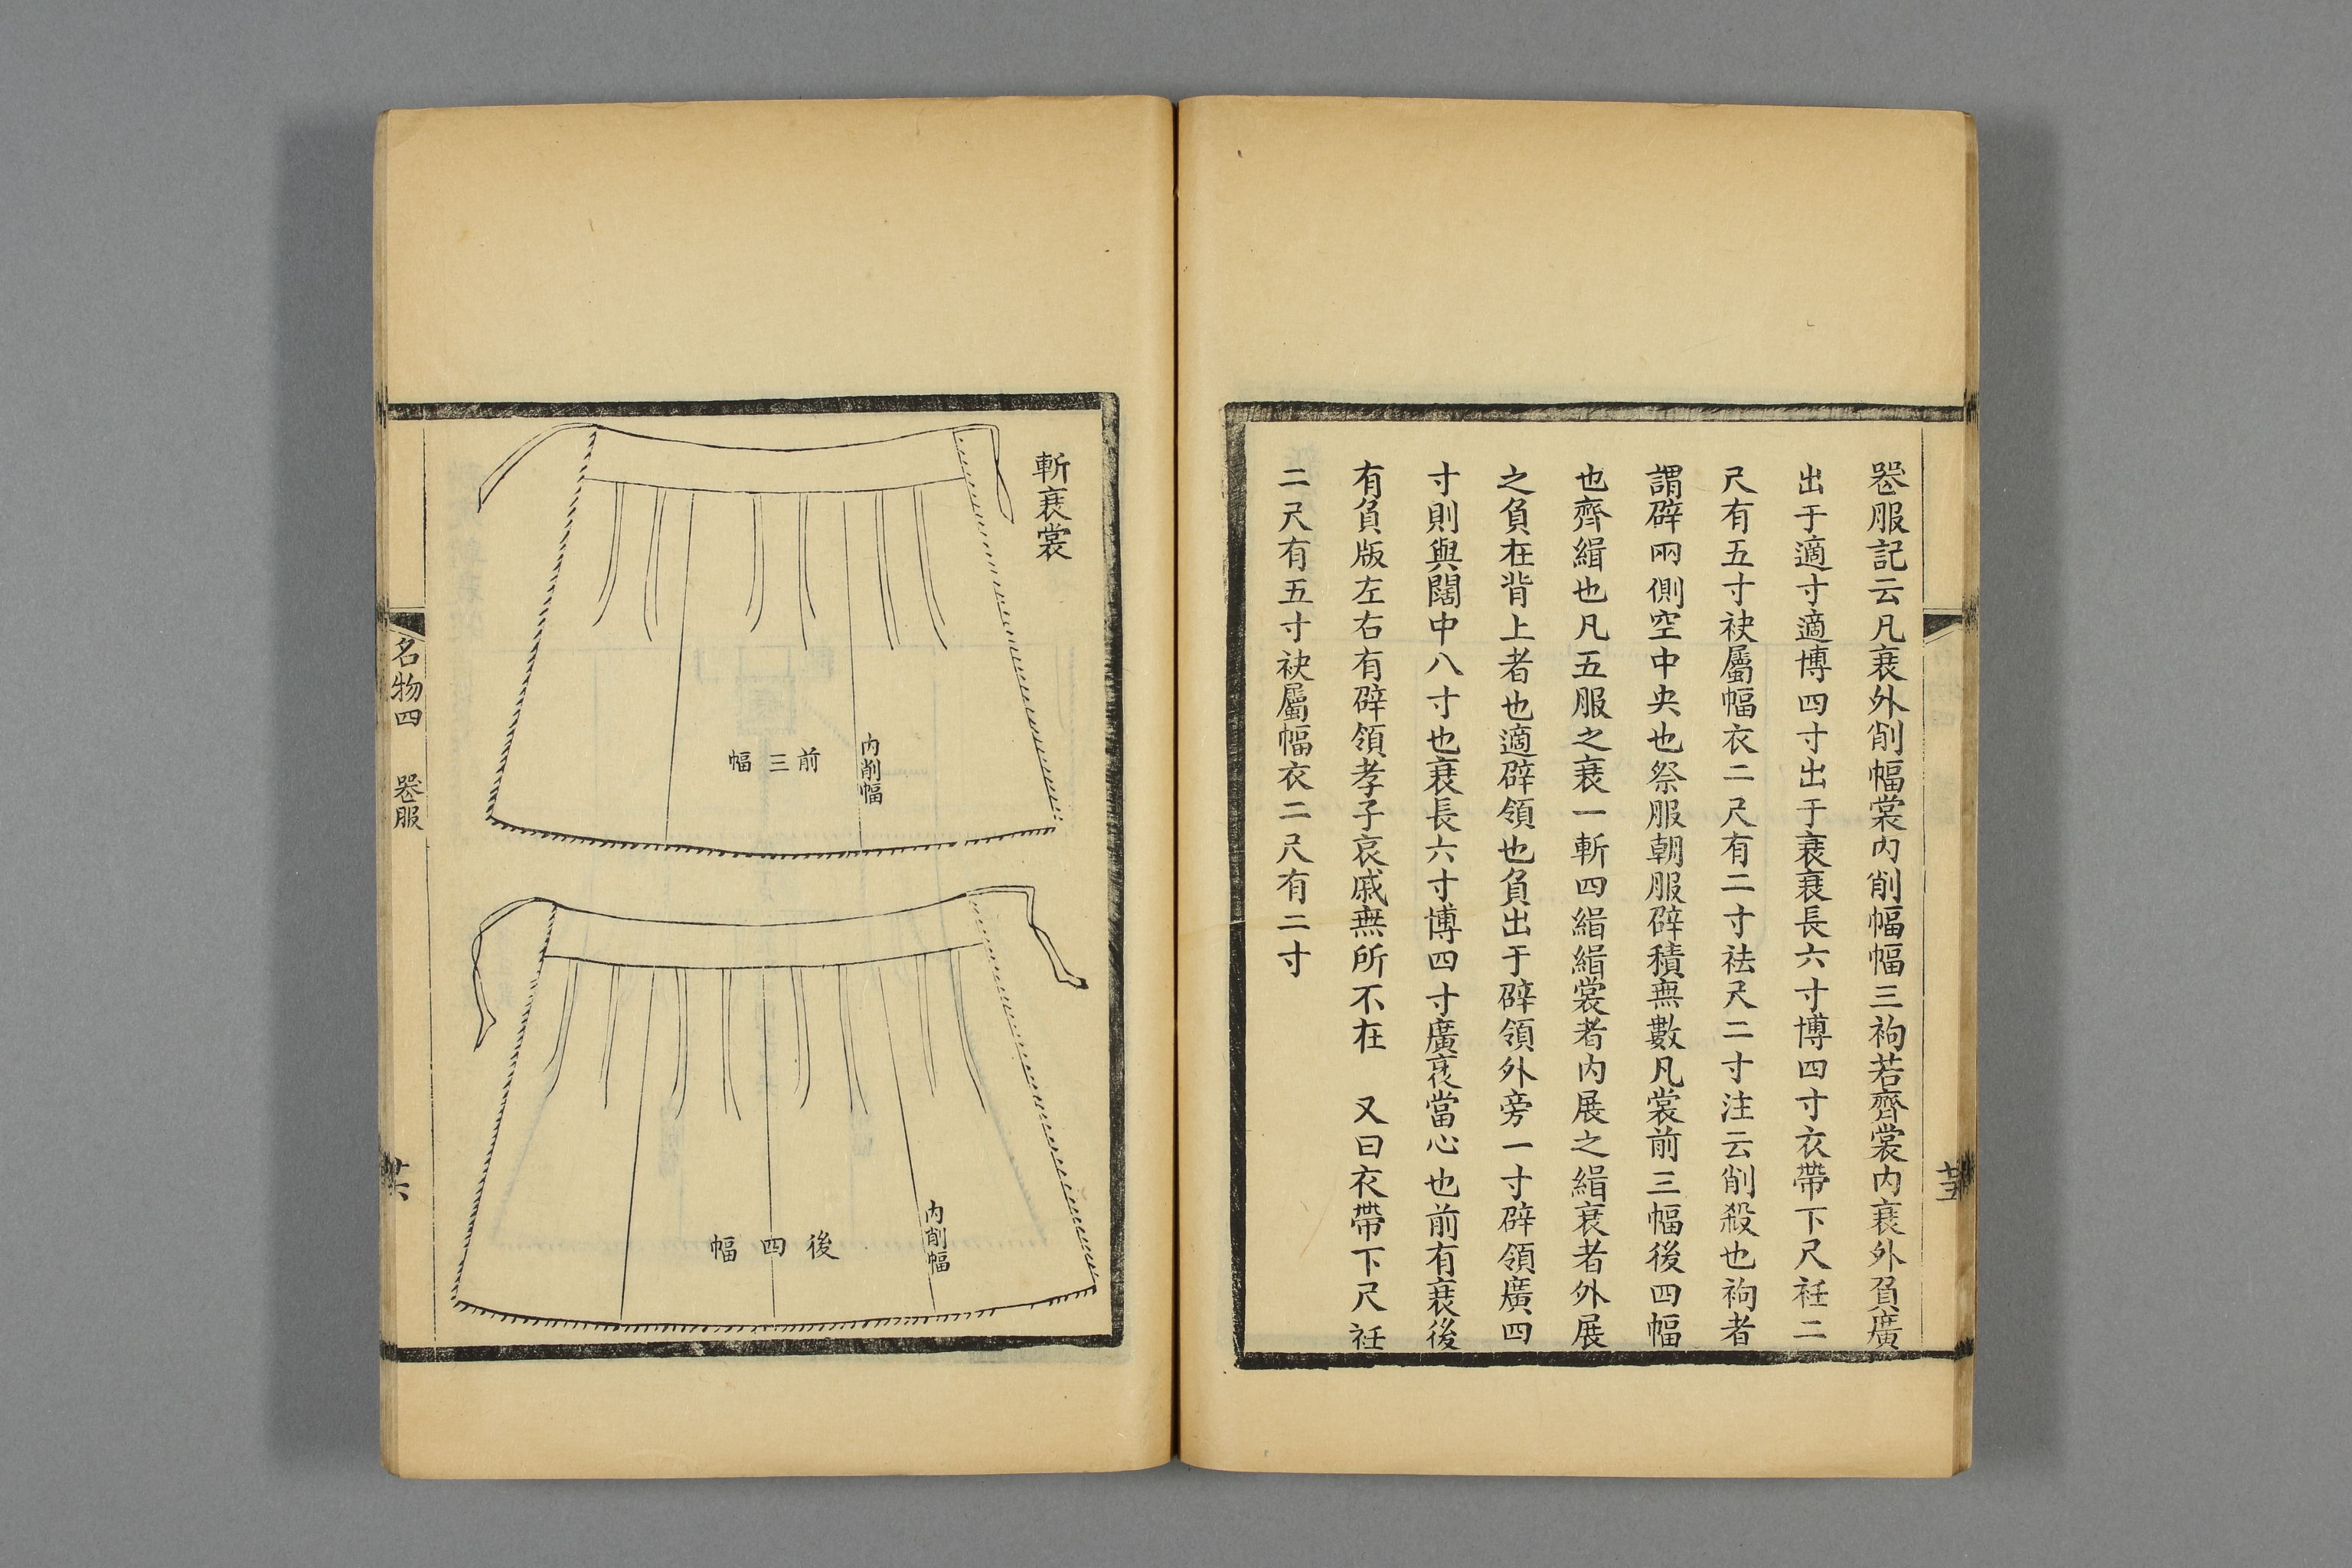 喪服記云凡衰外削幅裳內削幅幅三袧若齊裳內衰外負廣
出于適寸適博四寸出于衰衰長六寸博四寸衣帶下尺衽二
尺有五寸袂屬幅衣二尺有二寸袪尺二寸注云削殺也袧者
謂辟兩側空中央也祭服朝服辟積無數凡裳前三幅後四幅
也齊緝也凡五服之衰一斬四緝緝裳者內展之緝衰者外展
之負在背上者也適辟領也負出于辟領外旁一寸辟領廣四
寸則與闊中八寸也衰長六寸博四寸廣袤當心也前有衰後
有負版左右有辟領孝子哀戚無所不在　又曰衣帶下尺衽
二尺有五寸袂屬幅衣二尺有二寸
斬衰裳
內削幅
前三幅
內削幅
後四幅
名物四　喪服